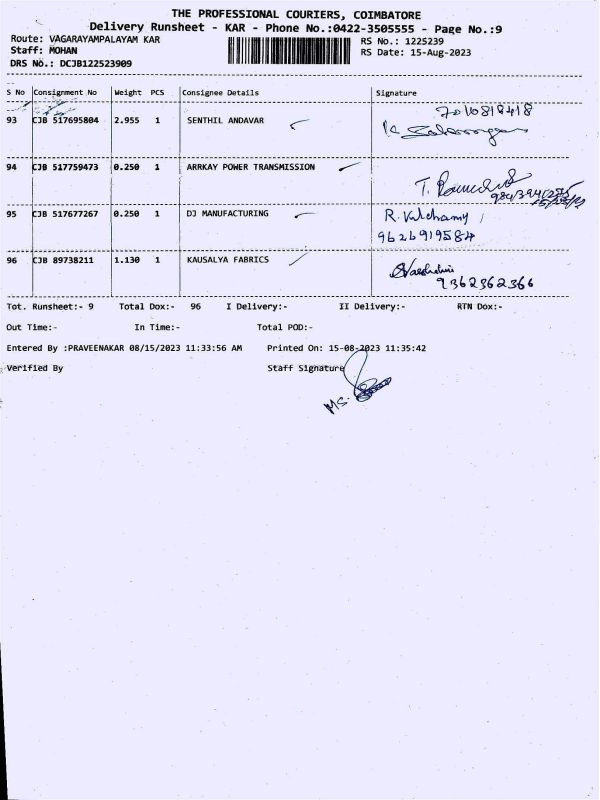 THE PROFESSIONAL COURIERS, COIMBATORE
Delivery Runsheet - KAR - Phone No.:0422-3505555 - Page No.:9
Route: VAGARAYAMPALAYAM KAR RS No.: 1225239
Staff: MOHAN RS Date: 15-Aug-2023
DRS No.: DCJB122523909
S No Consignment No Weight PCS Consignee Details Signature
93 CJB 517695804 2.955 1 SENTHIL ANDAVAR 7010818418
94 CJB 517759473 0.250 1 ARRKAY POWER TRANSMISSION
T.
95 CJB 517677267 0.250 1 DJ MANUFACTURING R.
9626919584
96 CJB 89738211 1.130 1 KAUSALYA FABRICS
9362362366
Tot. Runsheet:- 9 Total Dox:- 96 I Delivery:- II Delivery:- RTN Dox:-
Out Time:- In Time:- Total POD:-
Entered By :PRAVEENAKAR 08/15/2023 11:33:56 AM Printed On: 15-08-2023 11:35:42
Verified By Staff Signature
MS.